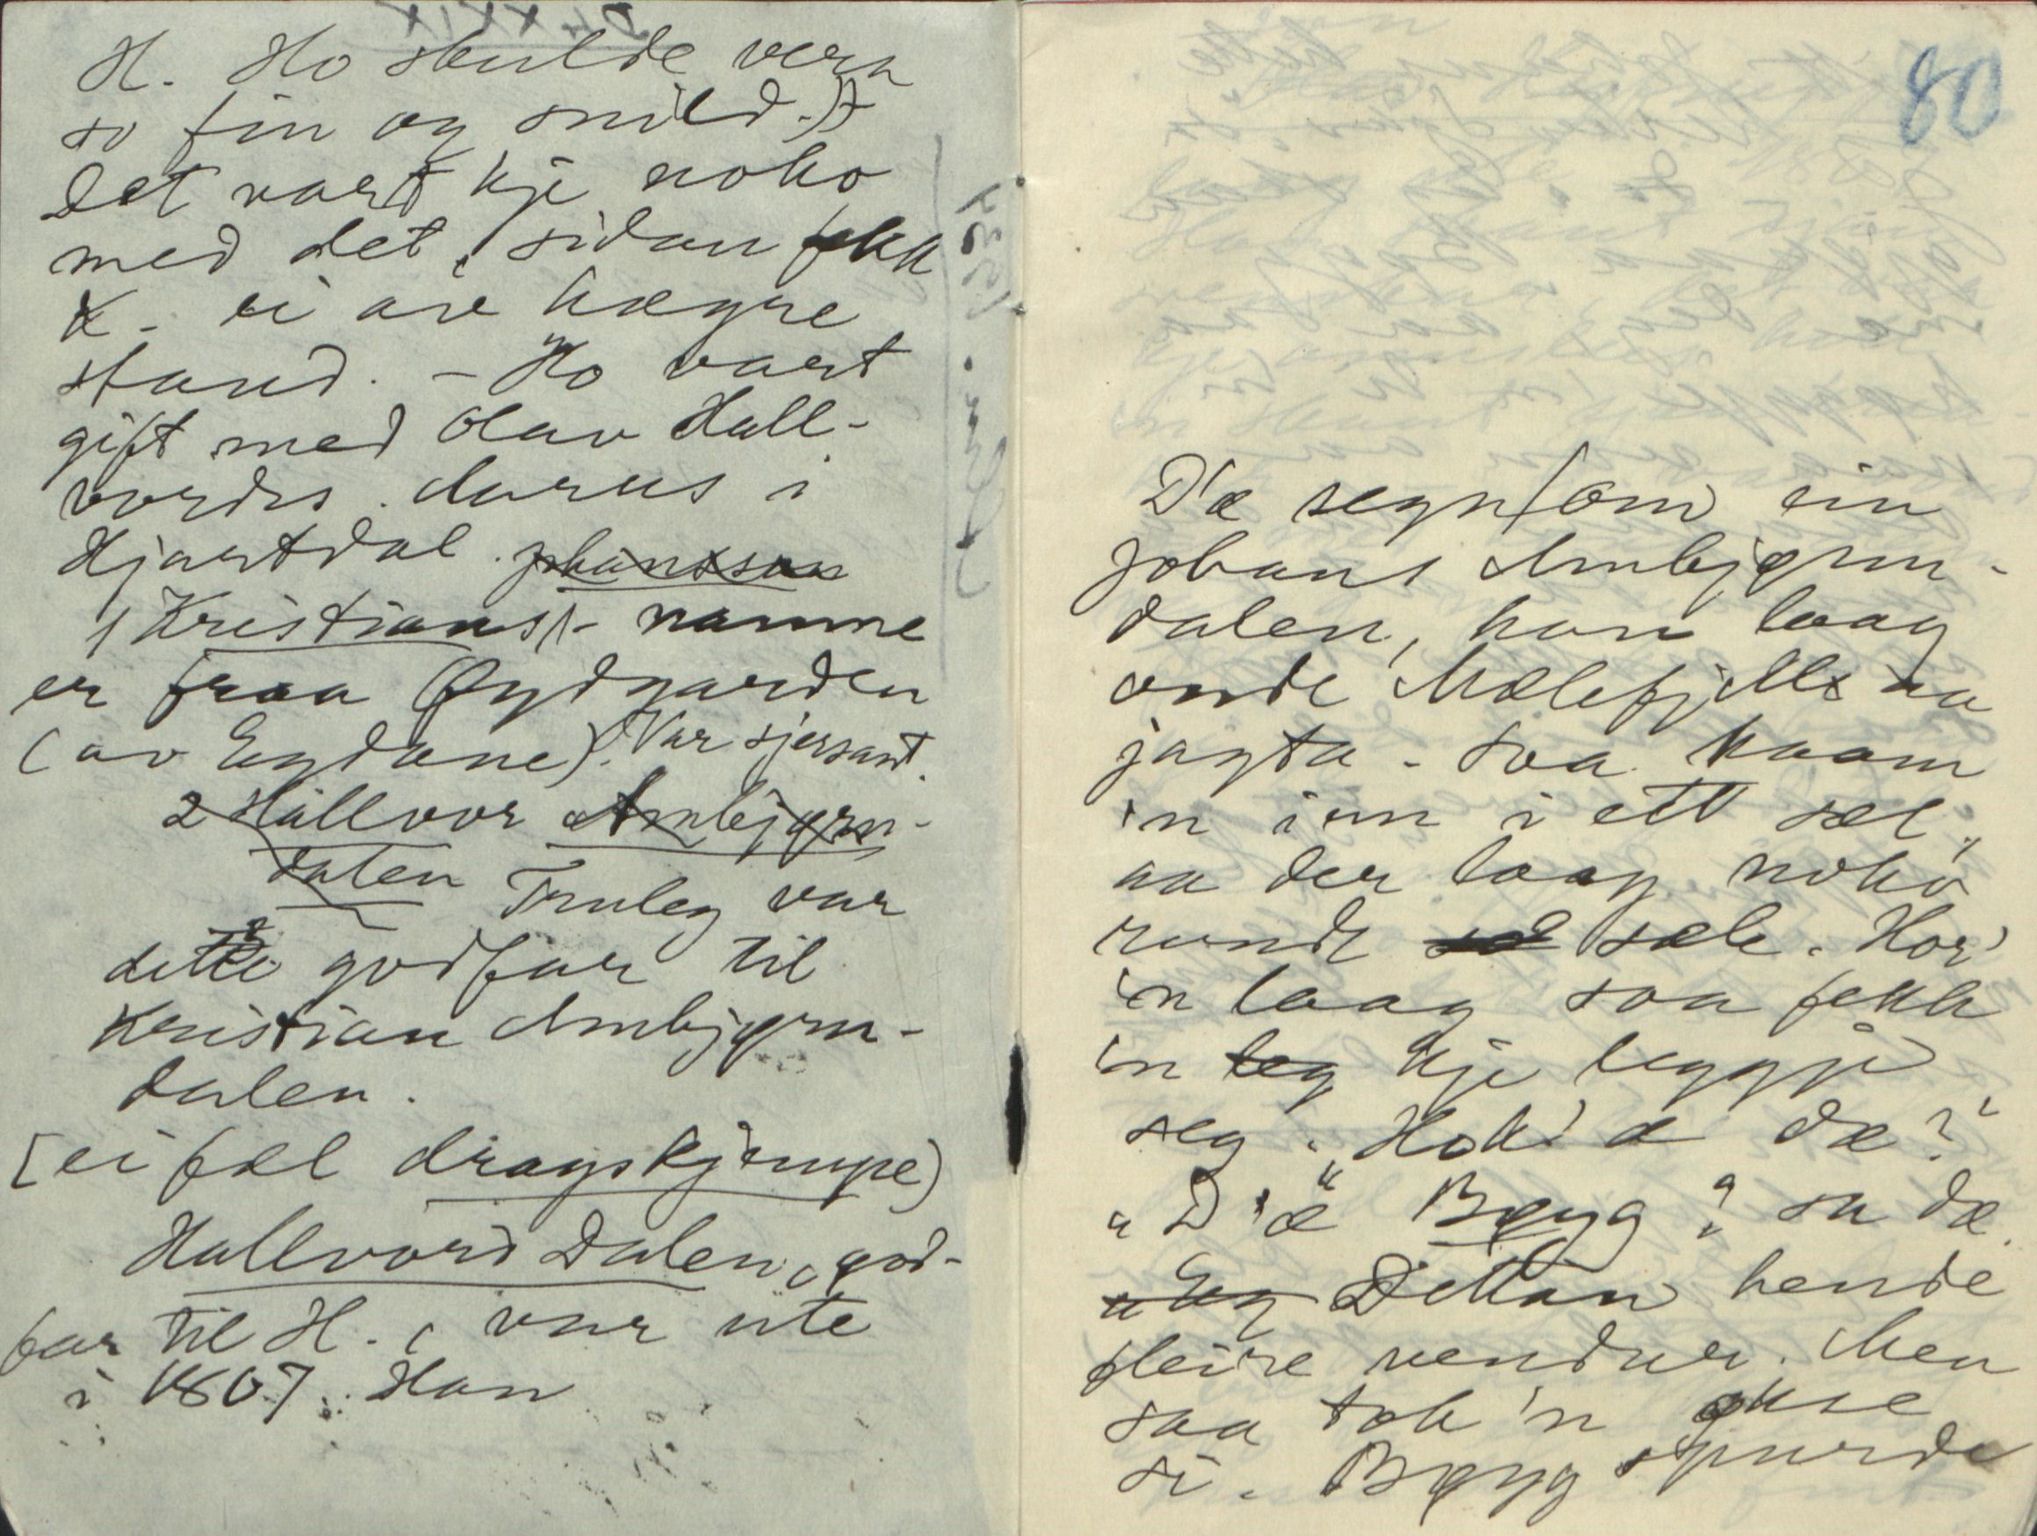 H. Ho skulde vera
so fin og snild.)
Det vart kje noko
med det, sidan fekk
K. ei av lægre
stand. - Ho vart
gift med Olav Hall-
vords. Aarus i
Hjartdal. Johansson
(Kristians)- namne
er fraa Øydgarden
(av Eydane). Var sjersant.
2 Hallvor Ambjørn-
dalen Truleg var
dette godfar til
Kristian Ambjørn-
dalen.
[ei fæl dragskjempe)
Hallvord Dalen, god-
far til H., var ute
i 1807. Han
80
D'æ segn om ein
Johans Ambjørn-
dalen, han laag
onde Mælefjell aa
jagta. Saa kaam
'n inn i ett sæl,
aa der laag noko
rundt sæ sæle. Hor'
'n laag saa fekk
'n leg kje leggje
seg. "Hok' æ dæ?"
"D'æ Bøyg" sa dæ.
"Eg Dettan hende
fleire vendur. Men
saa tok 'n økse
si. Bøyg spurde